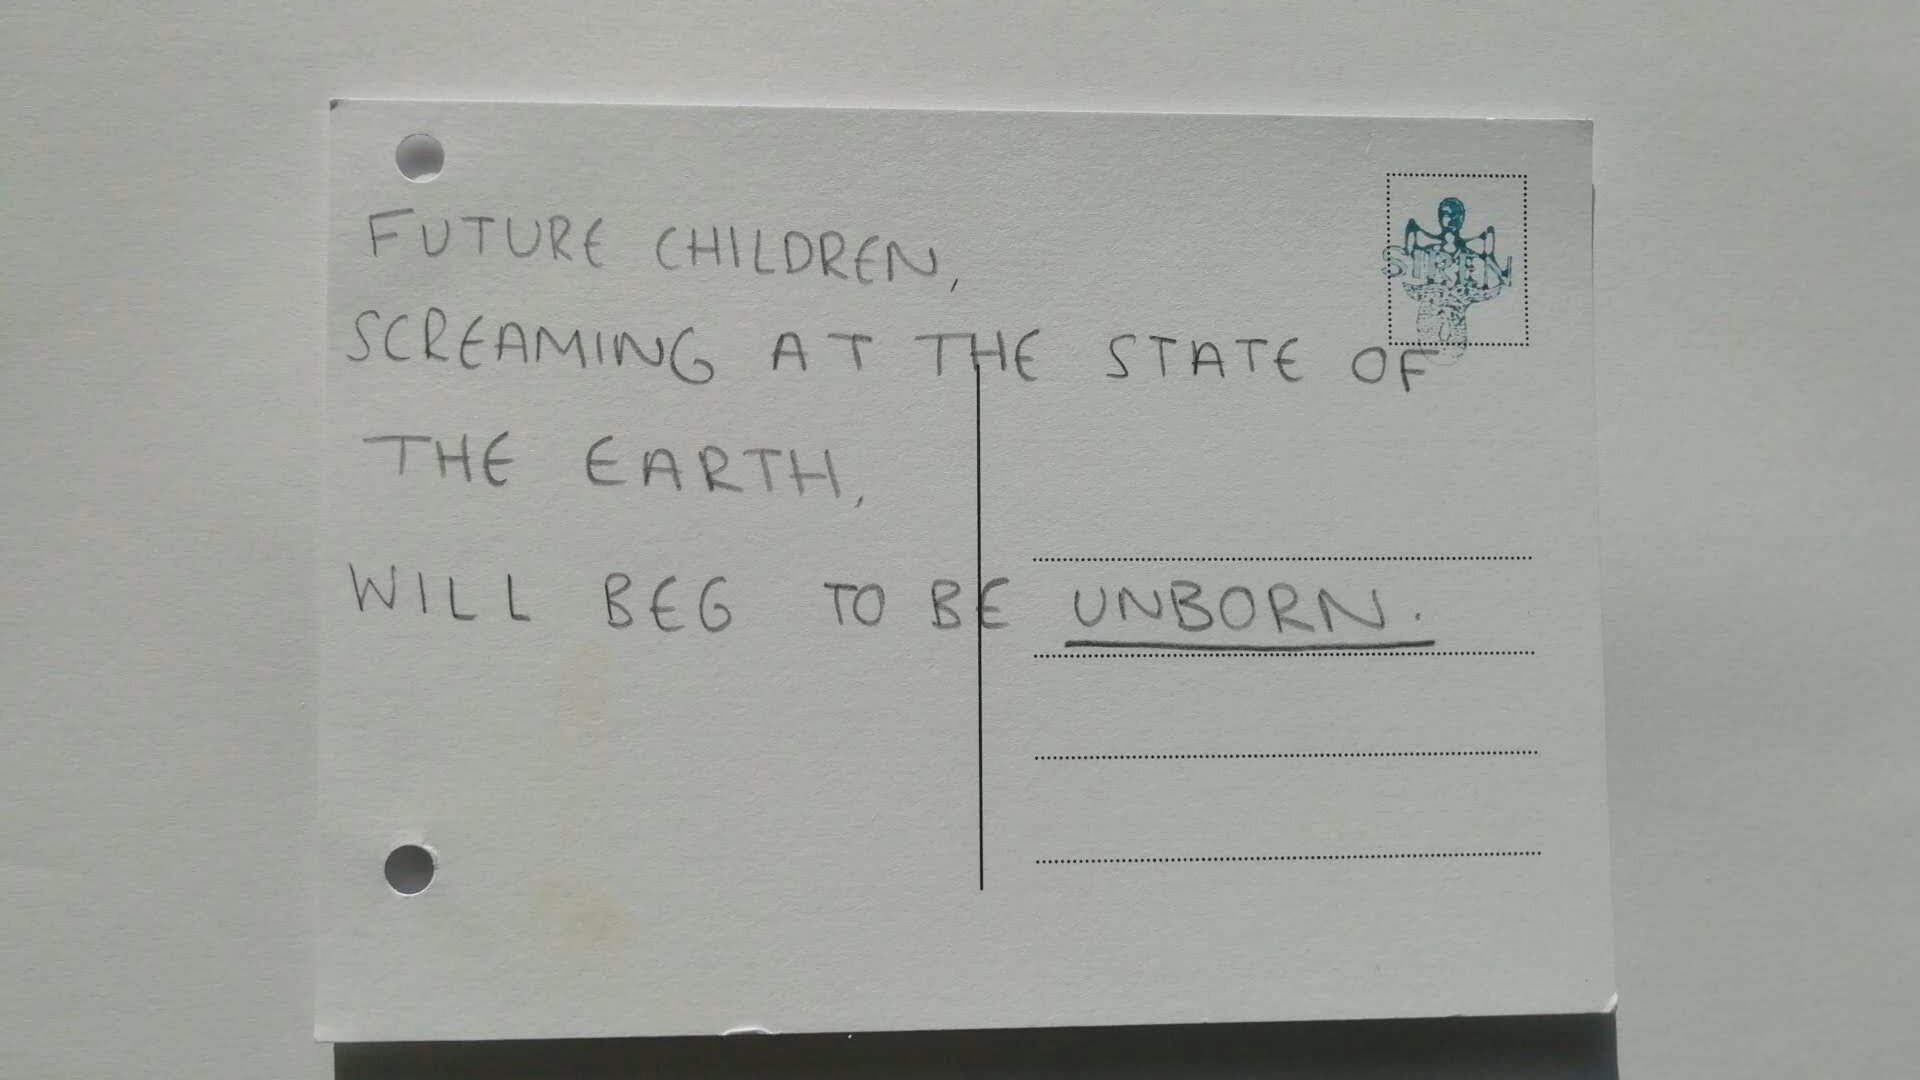 FUTURE CHILDREN,
SCREAMING AT THE STATE OF
THE EARTH,
WILL BEG TO BE UNBORN.
SIREN